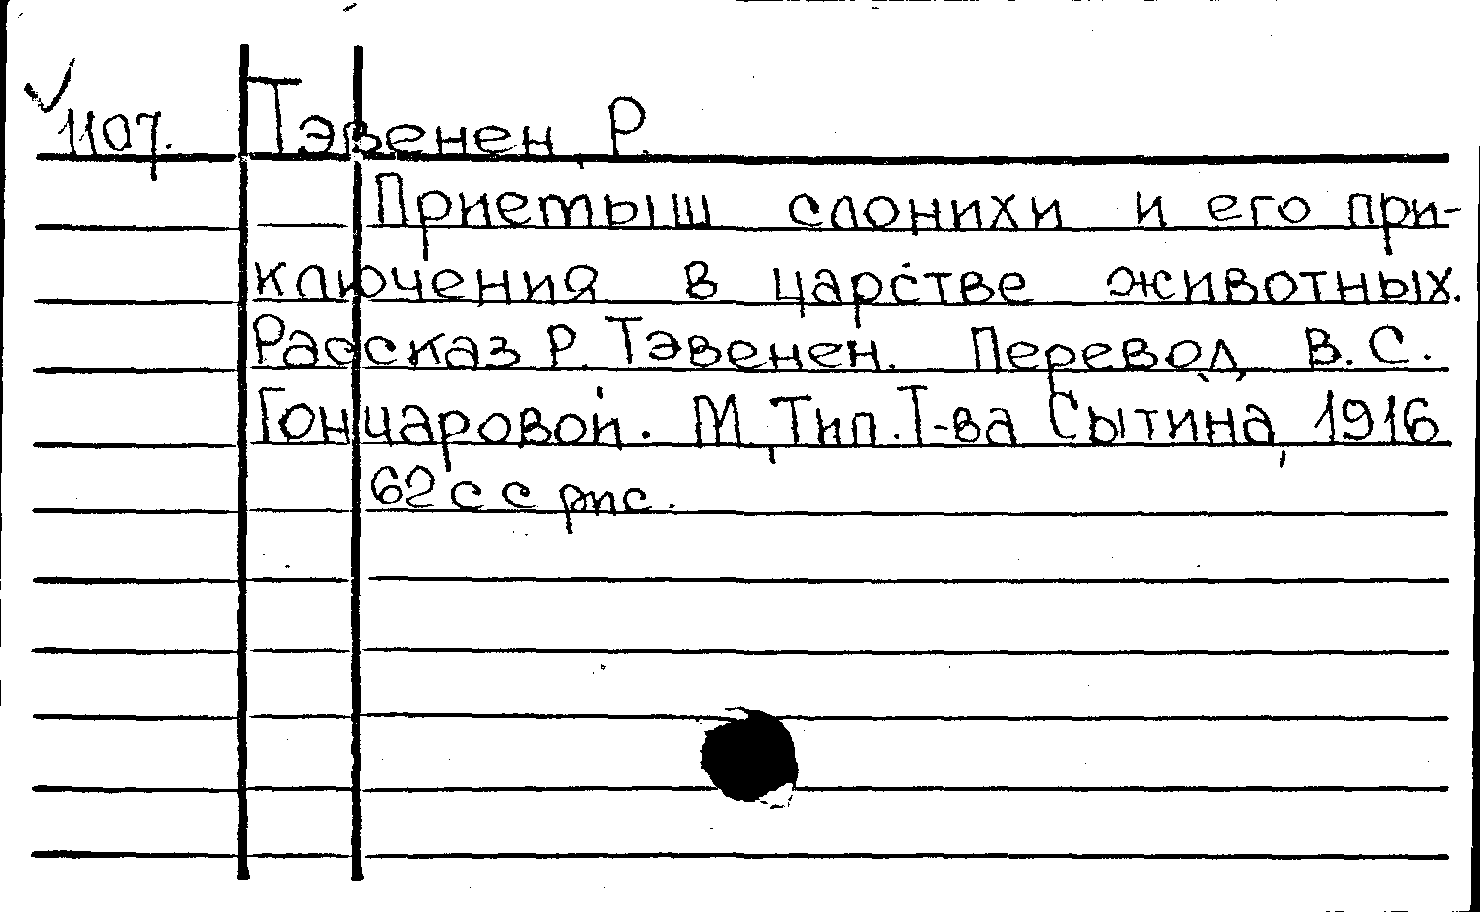 1107. Тэвенен, Р.
Приемыш слонихи и его при-
ключения в царстве животных.
Рассказ Р. Тэвенен. Перевод В. С.
Гончаровой. М, Тип. Т-ва Сытина, 1916
62 с с рис.